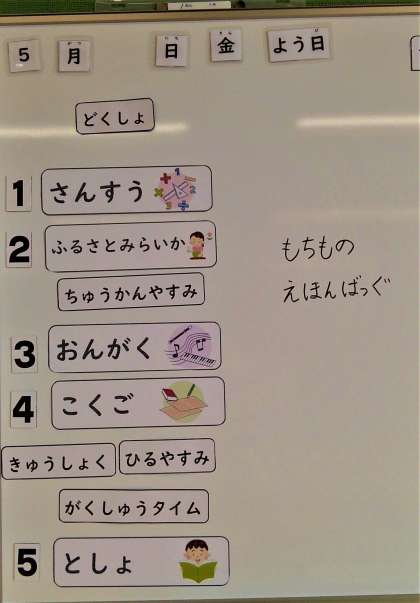 5 月 日 金 よう日
どくしょ
1 さんすう
2 ふるさとみらいか
もちもの
ちゅうかんやすみ
えほんばっぐ
3 おんがく
4 こくご
きゅうしょく ひるやすみ
がくしゅうタイム
5 としょ